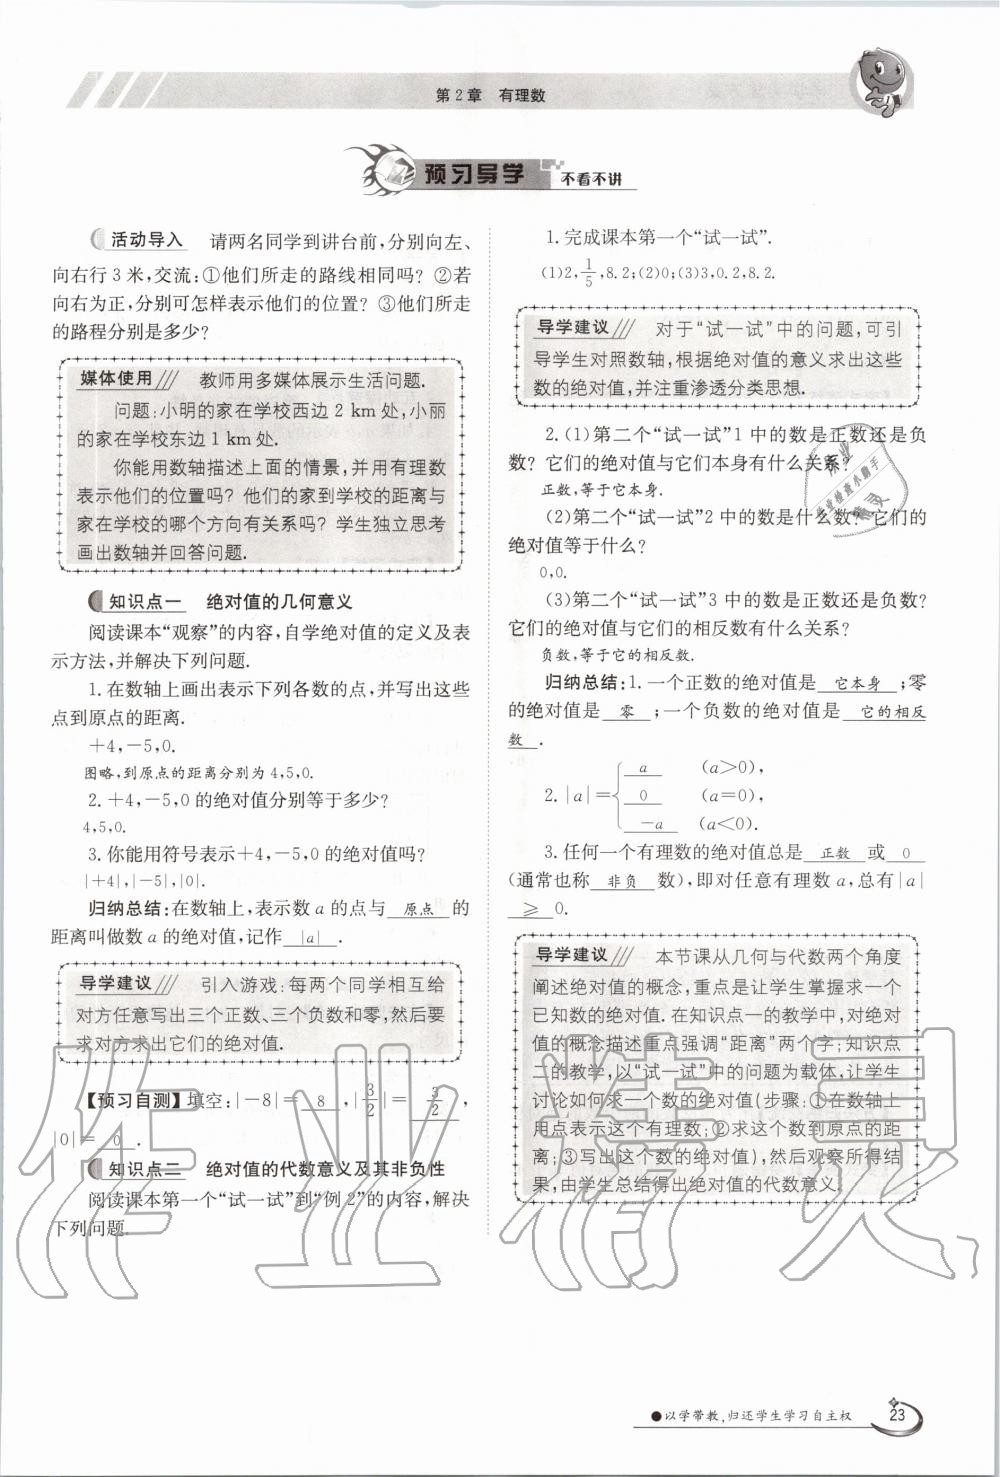 第2章　有理数
预习导学 不看不讲
活动导入　请两名同学到讲台前,分别向左、
向右行3米,交流:①他们所走的路线相同吗? ②若
向右为正,分别可怎样表示他们的位置? ③他们所走
的路程分别是多少?
媒体使用　教师用多媒体展示生活问题.
问题:小明的家在学校西边2 km处,小丽
的家在学校东边1 km处.
你能用数轴描述上面的情景,并用有理数
表示他们的位置吗? 他们的家到学校的距离与
家在学校的哪个方向有关系吗? 学生独立思考
画出数轴并回答问题.
知识点一　绝对值的几何意义
阅读课本“观察”的内容,自学绝对值的定义及表
示方法,并解决下列问题.
1. 在数轴上画出表示下列各数的点,并写出这些
点到原点的距离.
+4,-5,0.
图略,到原点的距离分别为4,5,0.
2. +4,-5,0的绝对值分别等于多少?
4,5,0.
3. 你能用符号表示+4,-5,0的绝对值吗?
|+4|,|-5|,|0|.
归纳总结:在数轴上,表示数a的点与 原点 的
距离叫做数a的绝对值,记作 |a| .
导学建议　引入游戏:每两个同学相互给
对方任意写出三个正数、三个负数和零,然后要
求对方求出它们的绝对值.
【预习自测】填空:|-8|= 8 ,|3/2|= 3/2 ,
|0|= 0 .
知识点二　绝对值的代数意义及其非负性
阅读课本第一个“试一试”到“例2”的内容,解决
下列问题.
1. 完成课本第一个“试一试”.
(1)2,1/5,8.2;(2)0;(3)3,0.2,8.2.
导学建议　对于“试一试”中的问题,可引
导学生对照数轴,根据绝对值的意义求出这些
数的绝对值,并注重渗透分类思想.
2. (1)第二个“试一试”1中的数是正数还是负
数? 它们的绝对值与它们本身有什么关系?
正数,等于它本身.
(2)第二个“试一试”2中的数是什么数? 它们的
绝对值等于什么?
0,0.
(3)第二个“试一试”3中的数是正数还是负数?
它们的绝对值与它们的相反数有什么关系?
负数,等于它的相反数.
归纳总结:1. 一个正数的绝对值是 它本身 ;零
的绝对值是 零 ;一个负数的绝对值是 它的相反
数 .
a (a>0),
2. |a|={ 0 (a=0),
-a (a<0).
3. 任何一个有理数的绝对值总是 正数 或 0
(通常也称 非负 数),即对任意有理数a,总有|a|
≥ 0.
导学建议　本节课从几何与代数两个角度
阐述绝对值的概念,重点是让学生掌握求一个
已知数的绝对值. 在知识点一的教学中,对绝对
值的概念描述重点强调“距离”两个字;知识点
二的教学,以“试一试”中的问题为载体,让学生
讨论如何求一个数的绝对值(步骤:①在数轴上
用点表示这个有理数;②求这个数到原点的距
离;③写出这个数的绝对值),然后观察所得结
果,由学生总结得出绝对值的代数意义.
作业精灵
●以学带教,归还学生学习自主权
23